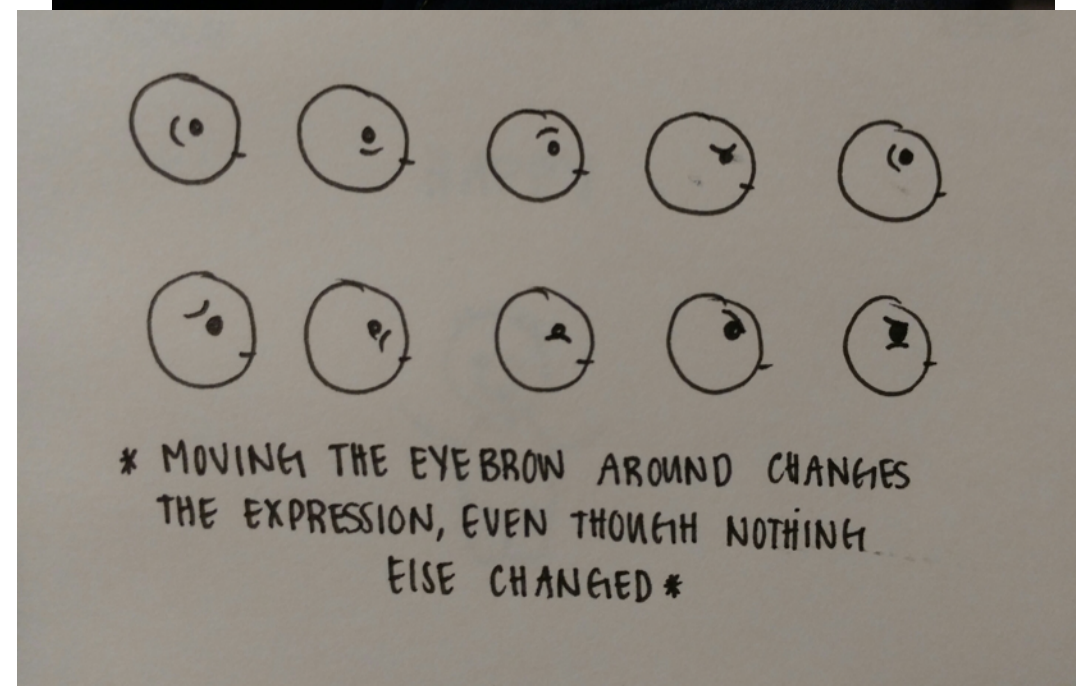 * MOVING THE EYEBROW AROUND CHANGES
THE EXPRESSION, EVEN THOUGH NOTHING
ElSE CHANGED *